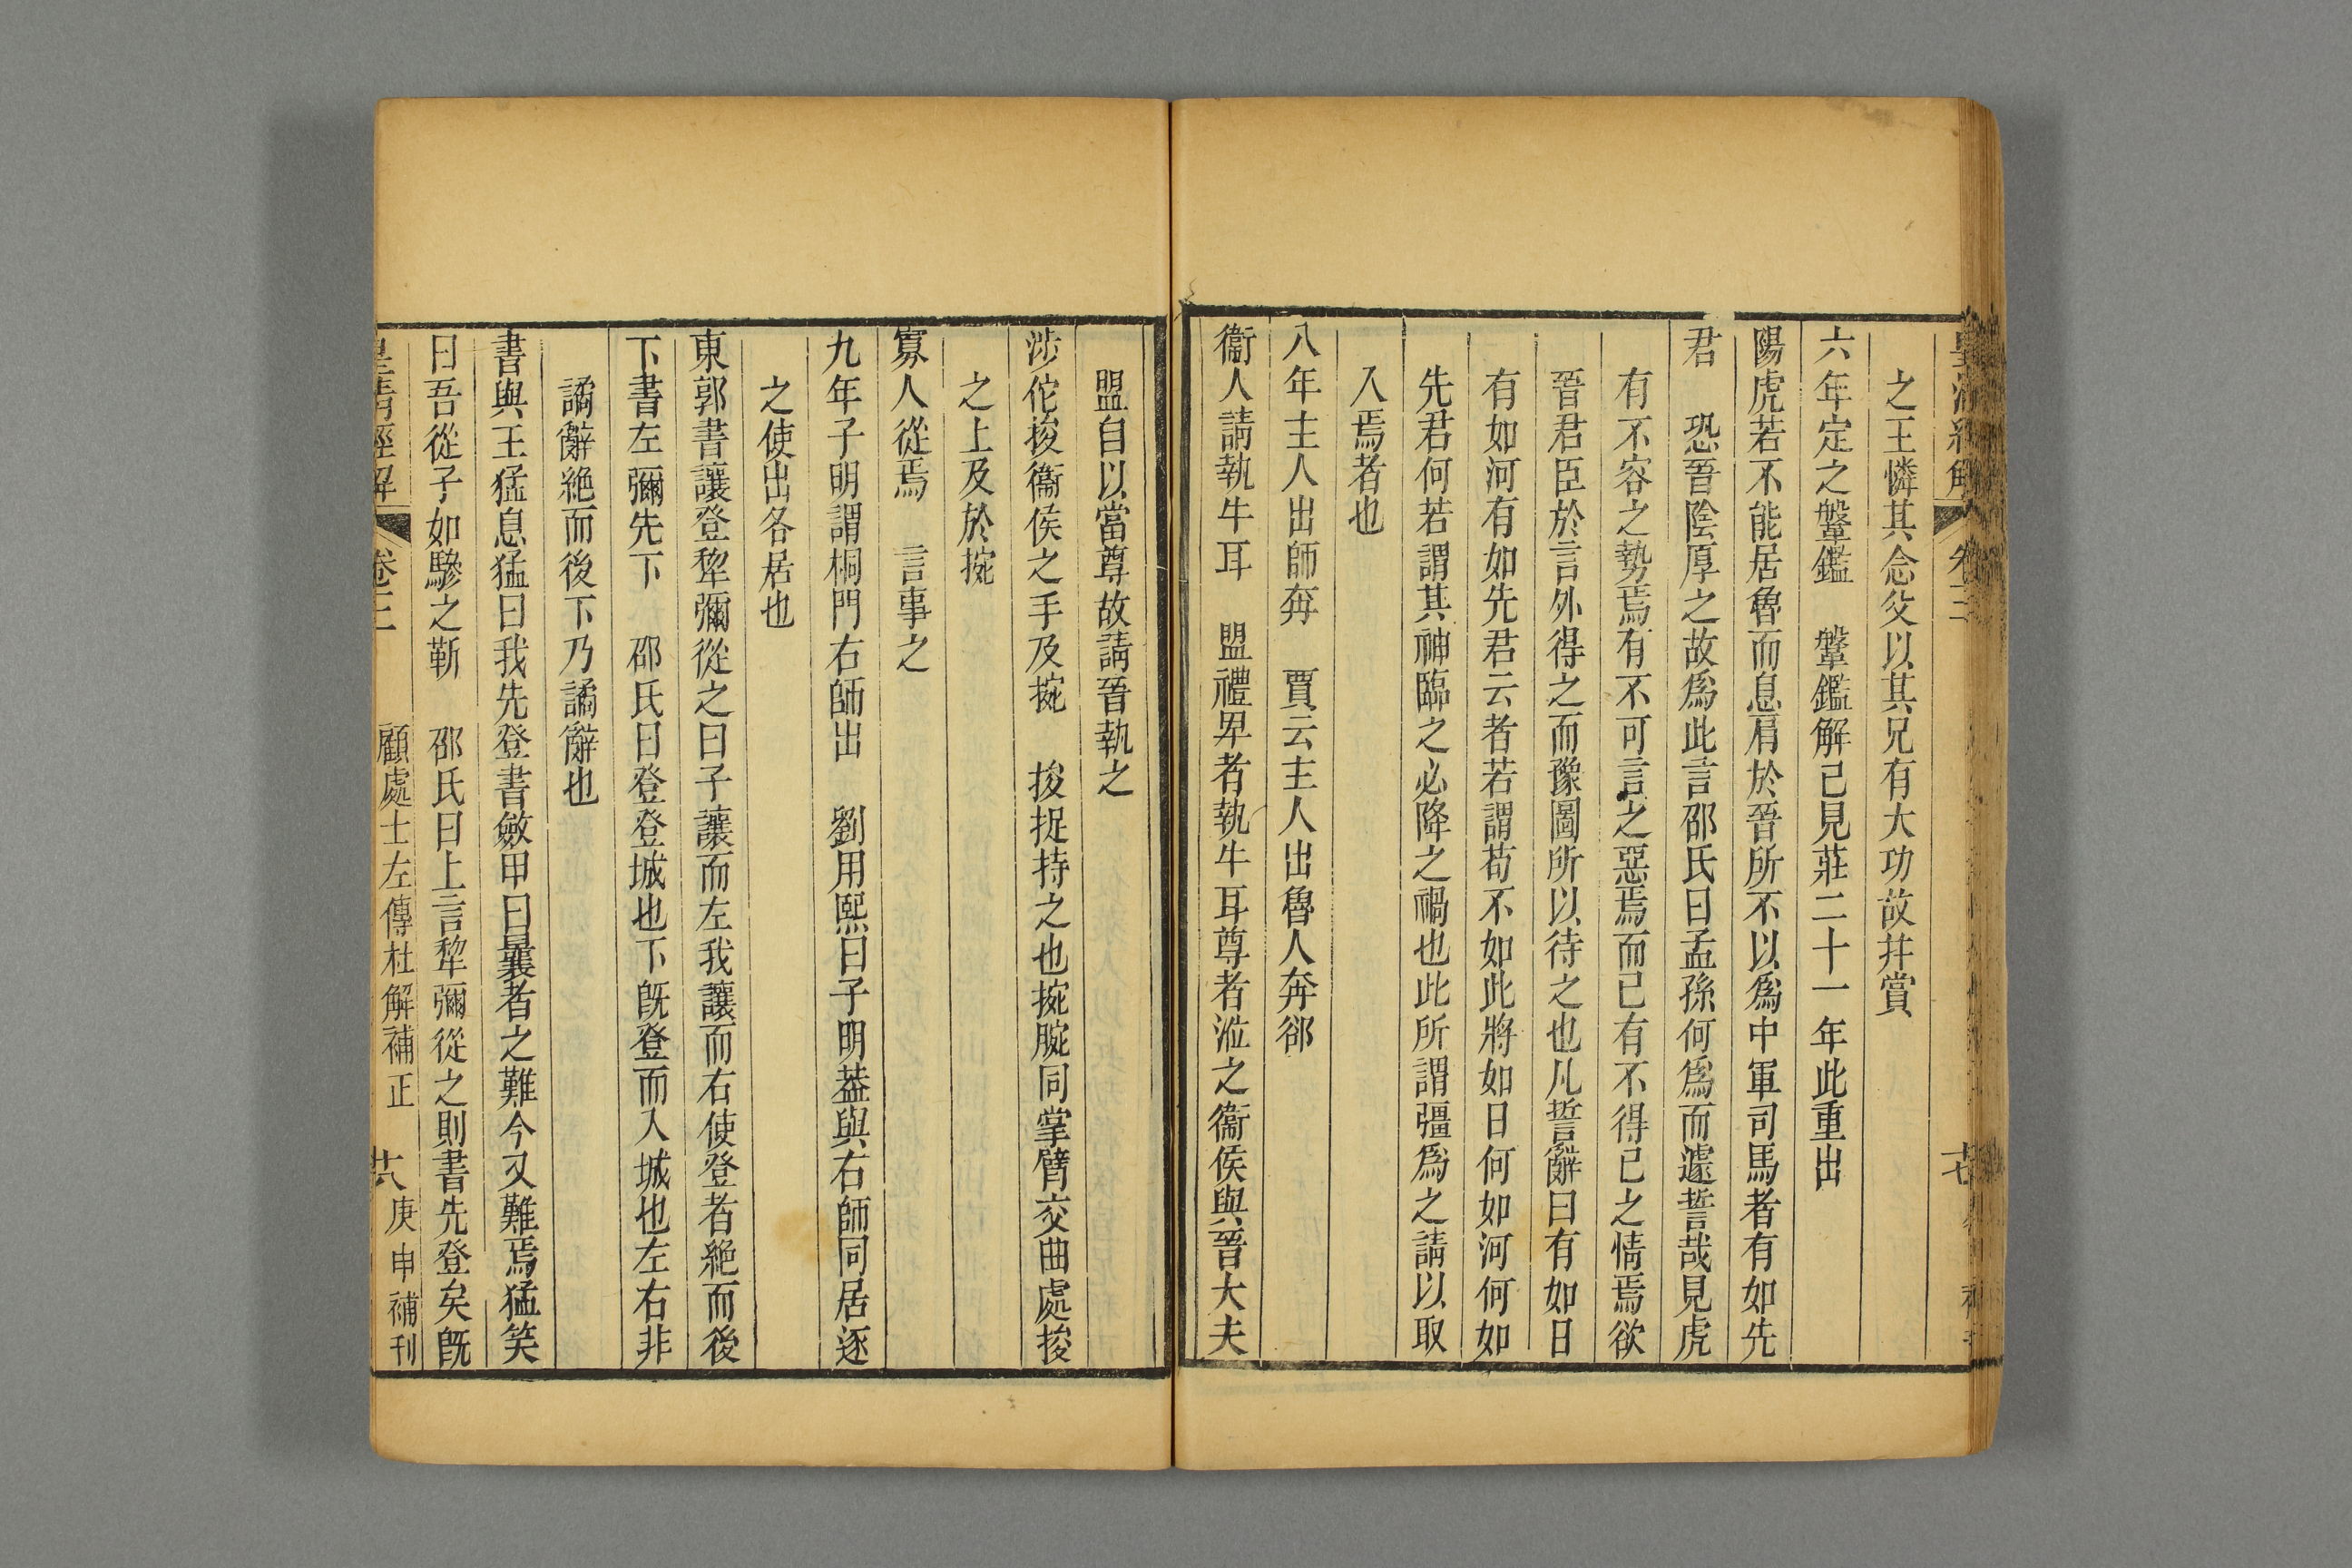 皇清經解 卷三
之王憐其念父以其兄有大功故幷賞
六年定之鞶鑑　鞶鑑解已見莊二十一年此重出
陽虎若不能居魯而息肩於晉所不以爲中軍司馬者有如先
君　恐晉陰厚之故爲此言邵氏曰孟孫何爲而遽誓哉見虎
有不容之勢焉有不可言之惡焉而已有不得已之情焉欲
晉君臣於言外得之而豫圖所以待之也凡誓辭曰有如日
有如河有如先君云者若謂苟不如此將如日何如河何如
先君何若謂其神臨之必降之禍也此所謂彊爲之請以取
入焉者也
八年主人出師奔　賈云主人出魯人奔郤
衞人請執牛耳　盟禮卑者執牛耳尊者涖之衞侯與晉大夫
盟自以當尊故請晉執之
涉佗捘衞侯之手及捥　捘捉持之也捥腕同掌臂交曲處捘
之上及於捥
寡人從焉　言事之
九年子明謂桐門右師出　劉用熙曰子明葢與右師同居逐
之使出各居也
東郭書讓登犂彌從之曰子讓而左我讓而右使登者絶而後
下書左彌先下　邵氏曰登登城也下旣登而入城也左右非
譎辭絶而後下乃譎辭也
書與王猛息猛曰我先登書斂甲曰曩者之難今又難焉猛笑
曰吾從子如驂之靳　邵氏曰上言犂彌從之則書先登矣旣
皇清經解 卷三 顧處士左傳杜解補正 六 庚申補刊